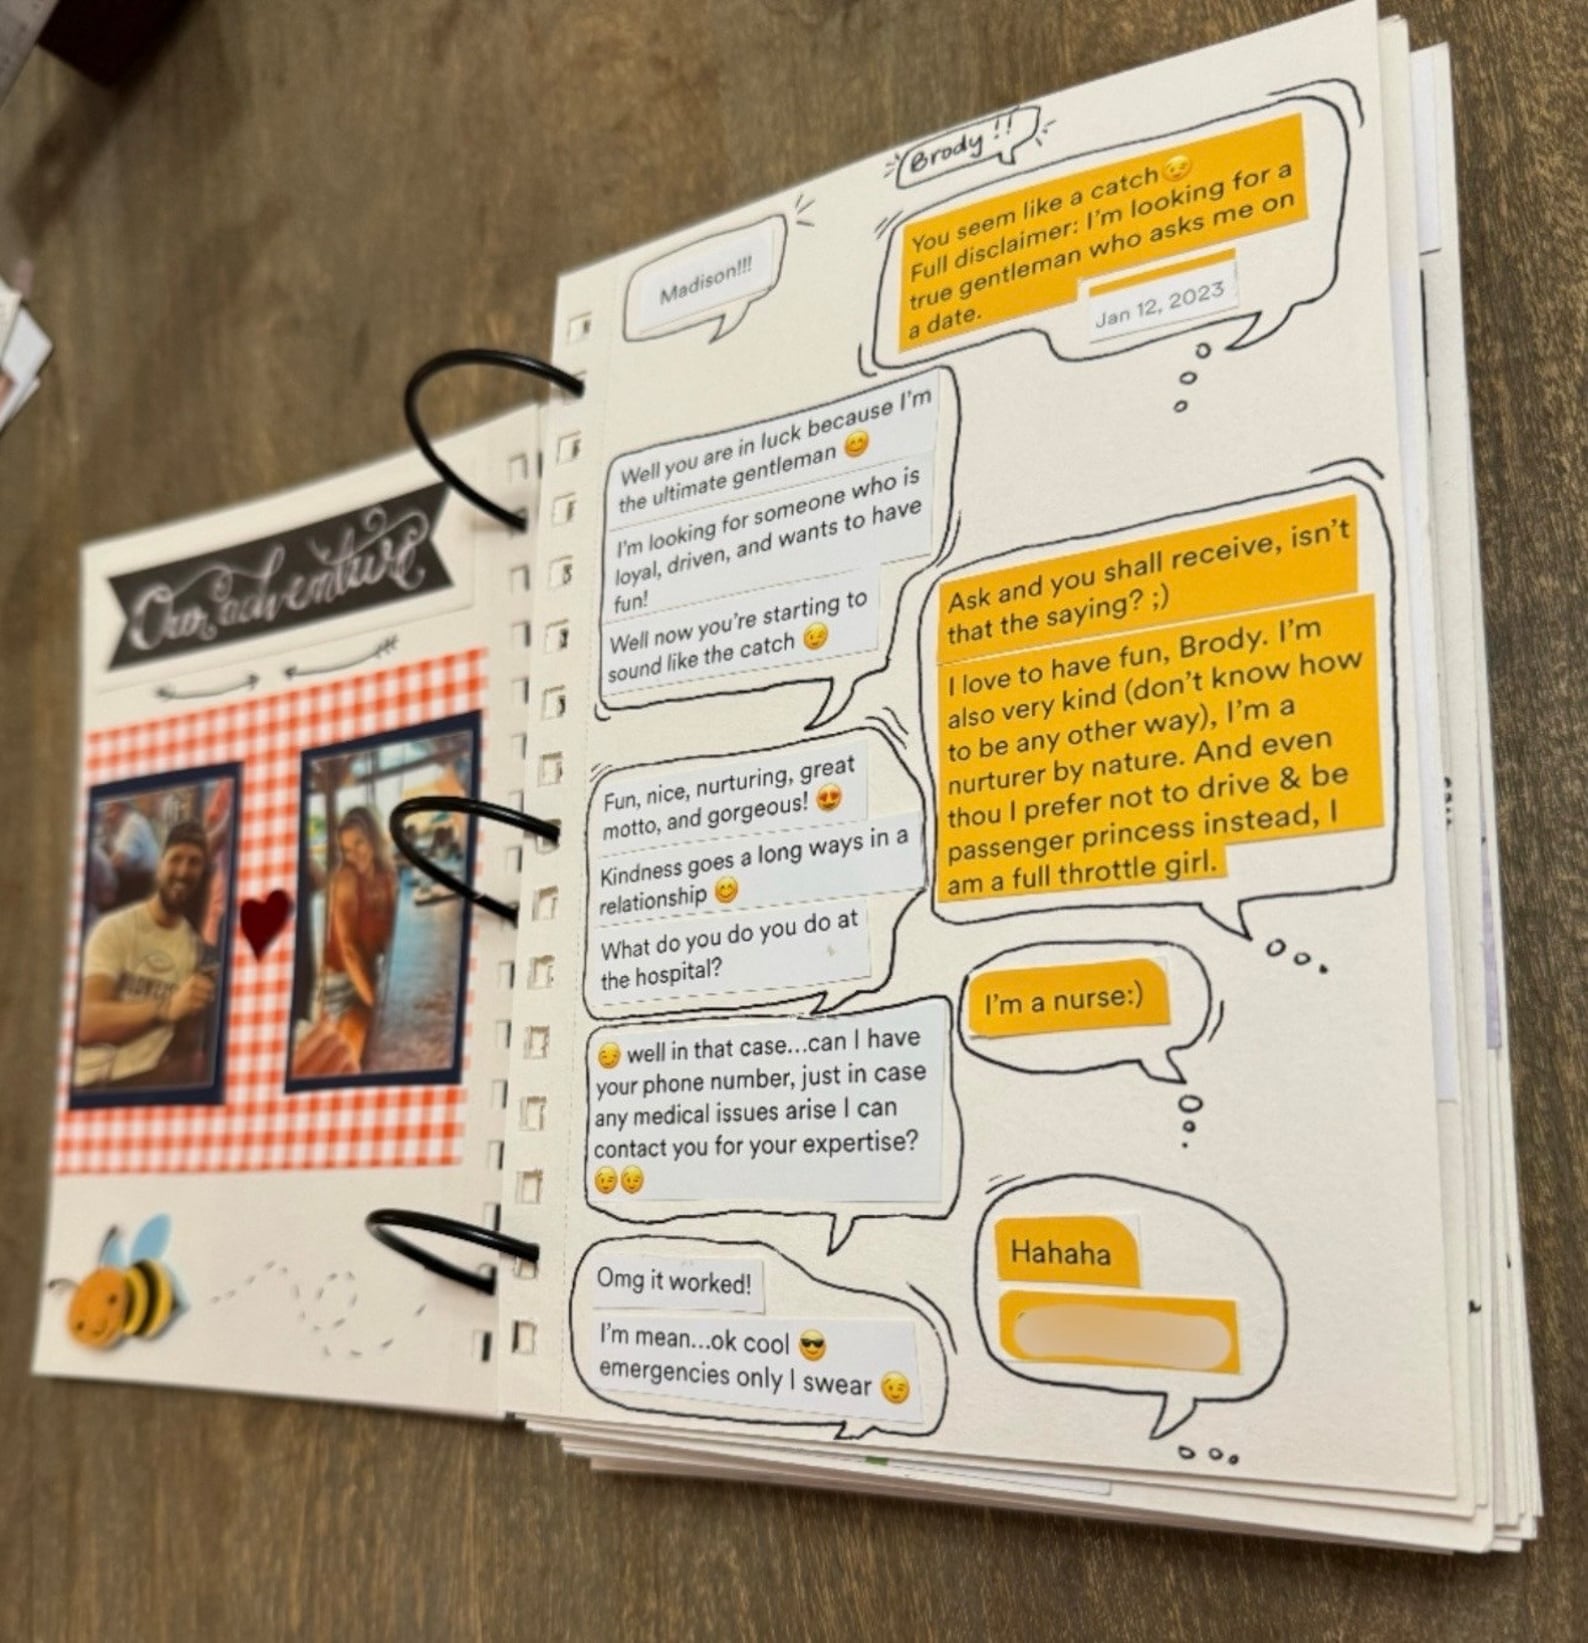 Our adventure
Madison!!!
Brody!!
You seem like a catch😉
Full disclaimer: I'm looking for a
true gentleman who asks me on
a date.
Jan 12, 2023
Well you are in luck because I'm
the ultimate gentleman 😊
I'm looking for someone who is
loyal, driven, and wants to have
fun!
Well now you're starting to
sound like the catch 😉
Ask and you shall receive, isn't
that the saying? ;)
I love to have fun, Brody. I'm
also very kind (don't know how
to be any other way), I'm a
nurturer by nature. And even
thou I prefer not to drive & be
passenger princess instead, I
am a full throttle girl.
Fun, nice, nurturing, great
motto, and gorgeous! 😍
Kindness goes a long ways in a
relationship 😊
What do you do you do at
the hospital?
I'm a nurse:)
😏 well in that case...can I have
your phone number, just in case
any medical issues arise I can
contact you for your expertise?
😉😉
Hahaha
Omg it worked!
I'm mean...ok cool 😎
emergencies only I swear 😉